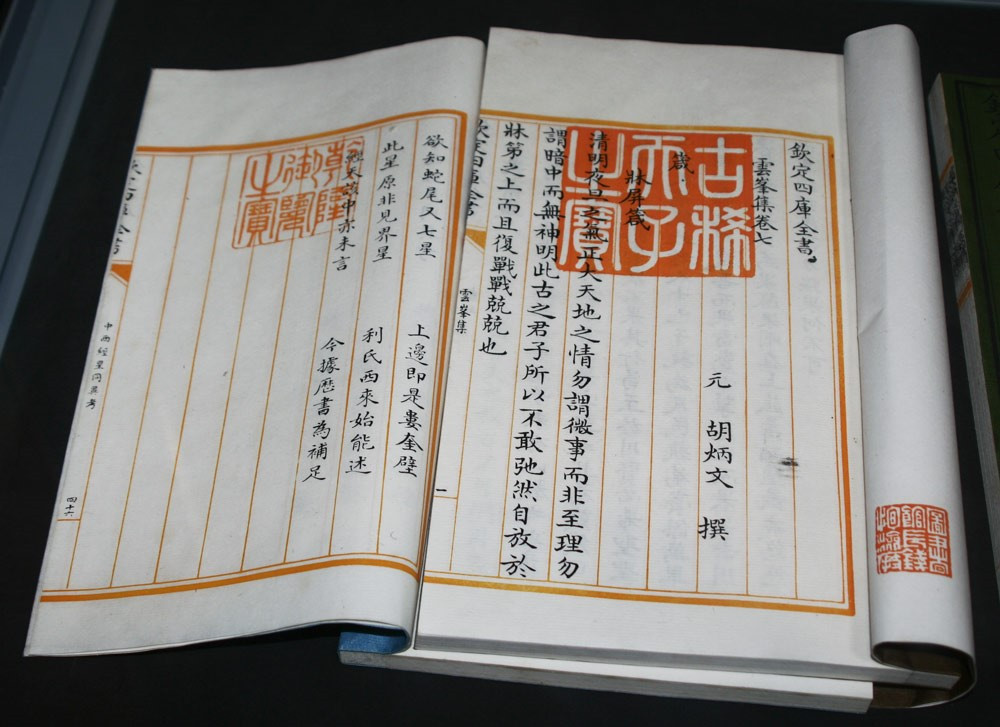 欽定四庫全書
雲峯集卷七
元 胡炳文 撰
箴
牀屏箴
清明夜旦之氣正大天地之情勿謂微事而非至理勿
謂暗中而無神明此古之君子所以不敢弛然自放於
牀第之上而且復戰戰兢兢也
古稀天子之寶
欽定四庫全書
雲峯集
一
欲知蛇尾又七星 上邊即是婁奎壁
此星原非見界星 利氏西來始能述
經天該中亦未言 今據歷書為補足
乾隆御覽之寶
欽定四庫全書
中西經星同異考
四十六